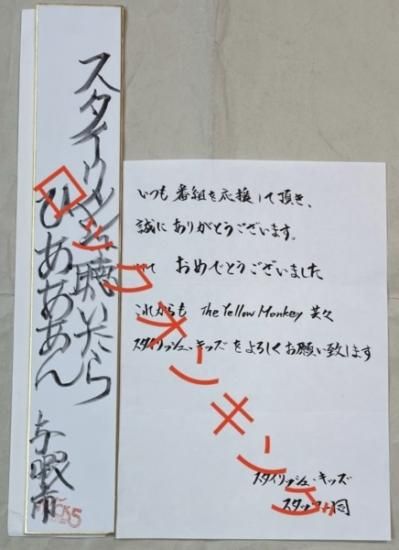 スタイリッシュ聴いたら
ひあああん
いつも 番組を応援して頂き、
誠にありがとうございます。
おめでとうございました
これからも The Yellow Monkey 共々
スタイリッシュ・キッズをよろしくお願い致します
スタイリッシュ・キッズ
スタッフ一同
ロックオンキング